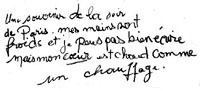 Une souvenir de la soir
de Paris. mes mains sont
froids et je peus pas bien écrire
mais mon cœur est chaud comme
un chauffage.